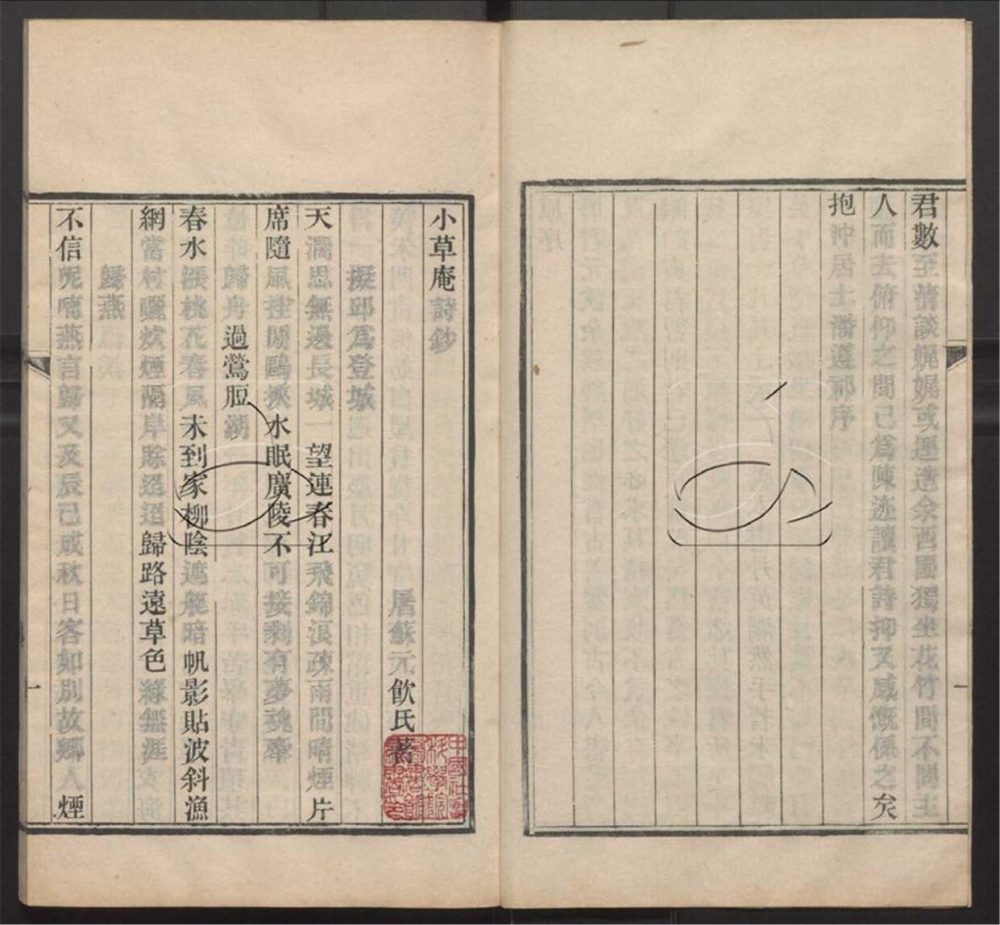 君數至清談娓娓或連造余西園獨坐花竹間不問主
人而去俯仰之間已為陳迹讀君詩抑又感慨係之矣
抱沖居士潘遵祁序
小草庵詩鈔
屠蘇元飲氏著
擬邱為登城
天濶思無邊長城一望連春江飛錦浪疎雨間晴煙片
席隨風挂閒鷗挾水眠廣陵不可接剩有夢魂牽
歸舟過鶯脰湖
春水漲桃花春風未到家柳陰遮艇暗帆影貼波斜漁
網當村曬炊煙隔岸賒迢迢歸路遠草色綠無涯
歸燕
不信呢喃燕言歸又及辰已成秋日客如別故鄉人煙
一